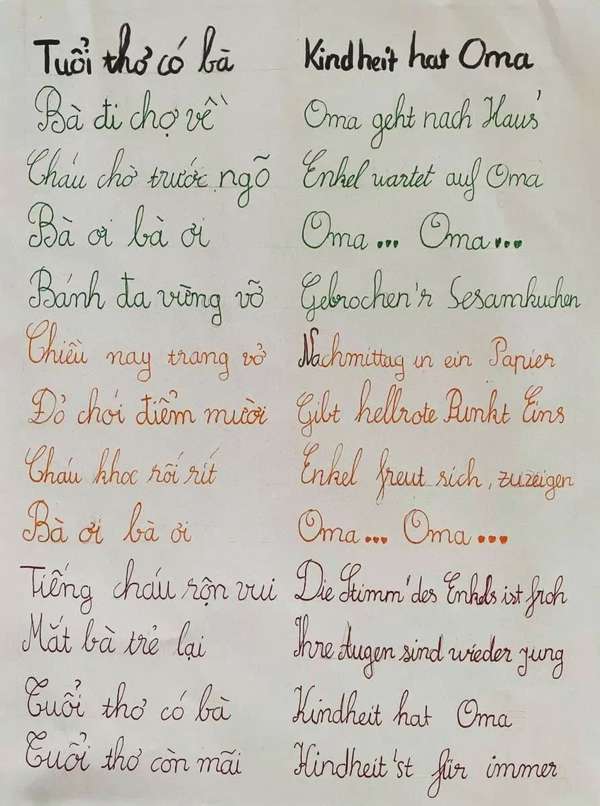 Tuổi thơ có bà
Bà đi chợ về
Cháu chờ trước ngõ
Bà ơi bà ơi
Bánh đa vừng vỡ
Chiều nay trang vở
Đỏ chói điểm mười
Cháu khoe rối rít
Bà ơi bà ơi
Tiếng cháu rộn vui
Mắt bà trẻ lại
Tuổi thơ có bà
Tuổi thơ còn mãi
Kindheit hat Oma
Oma geht nach Haus'
Enkel wartet auf Oma
Oma... Oma...
Gebrochen'r Sesamkuchen
Nachmittag in ein Papier
Gibt hellrote Punkt Eins
Enkel freut sich, zuzeigen
Oma... Oma...
Die Stimm' des Enkels ist froh
Ihre Augen sind wieder jung
Kindheit hat Oma
Kindheit'st für immer